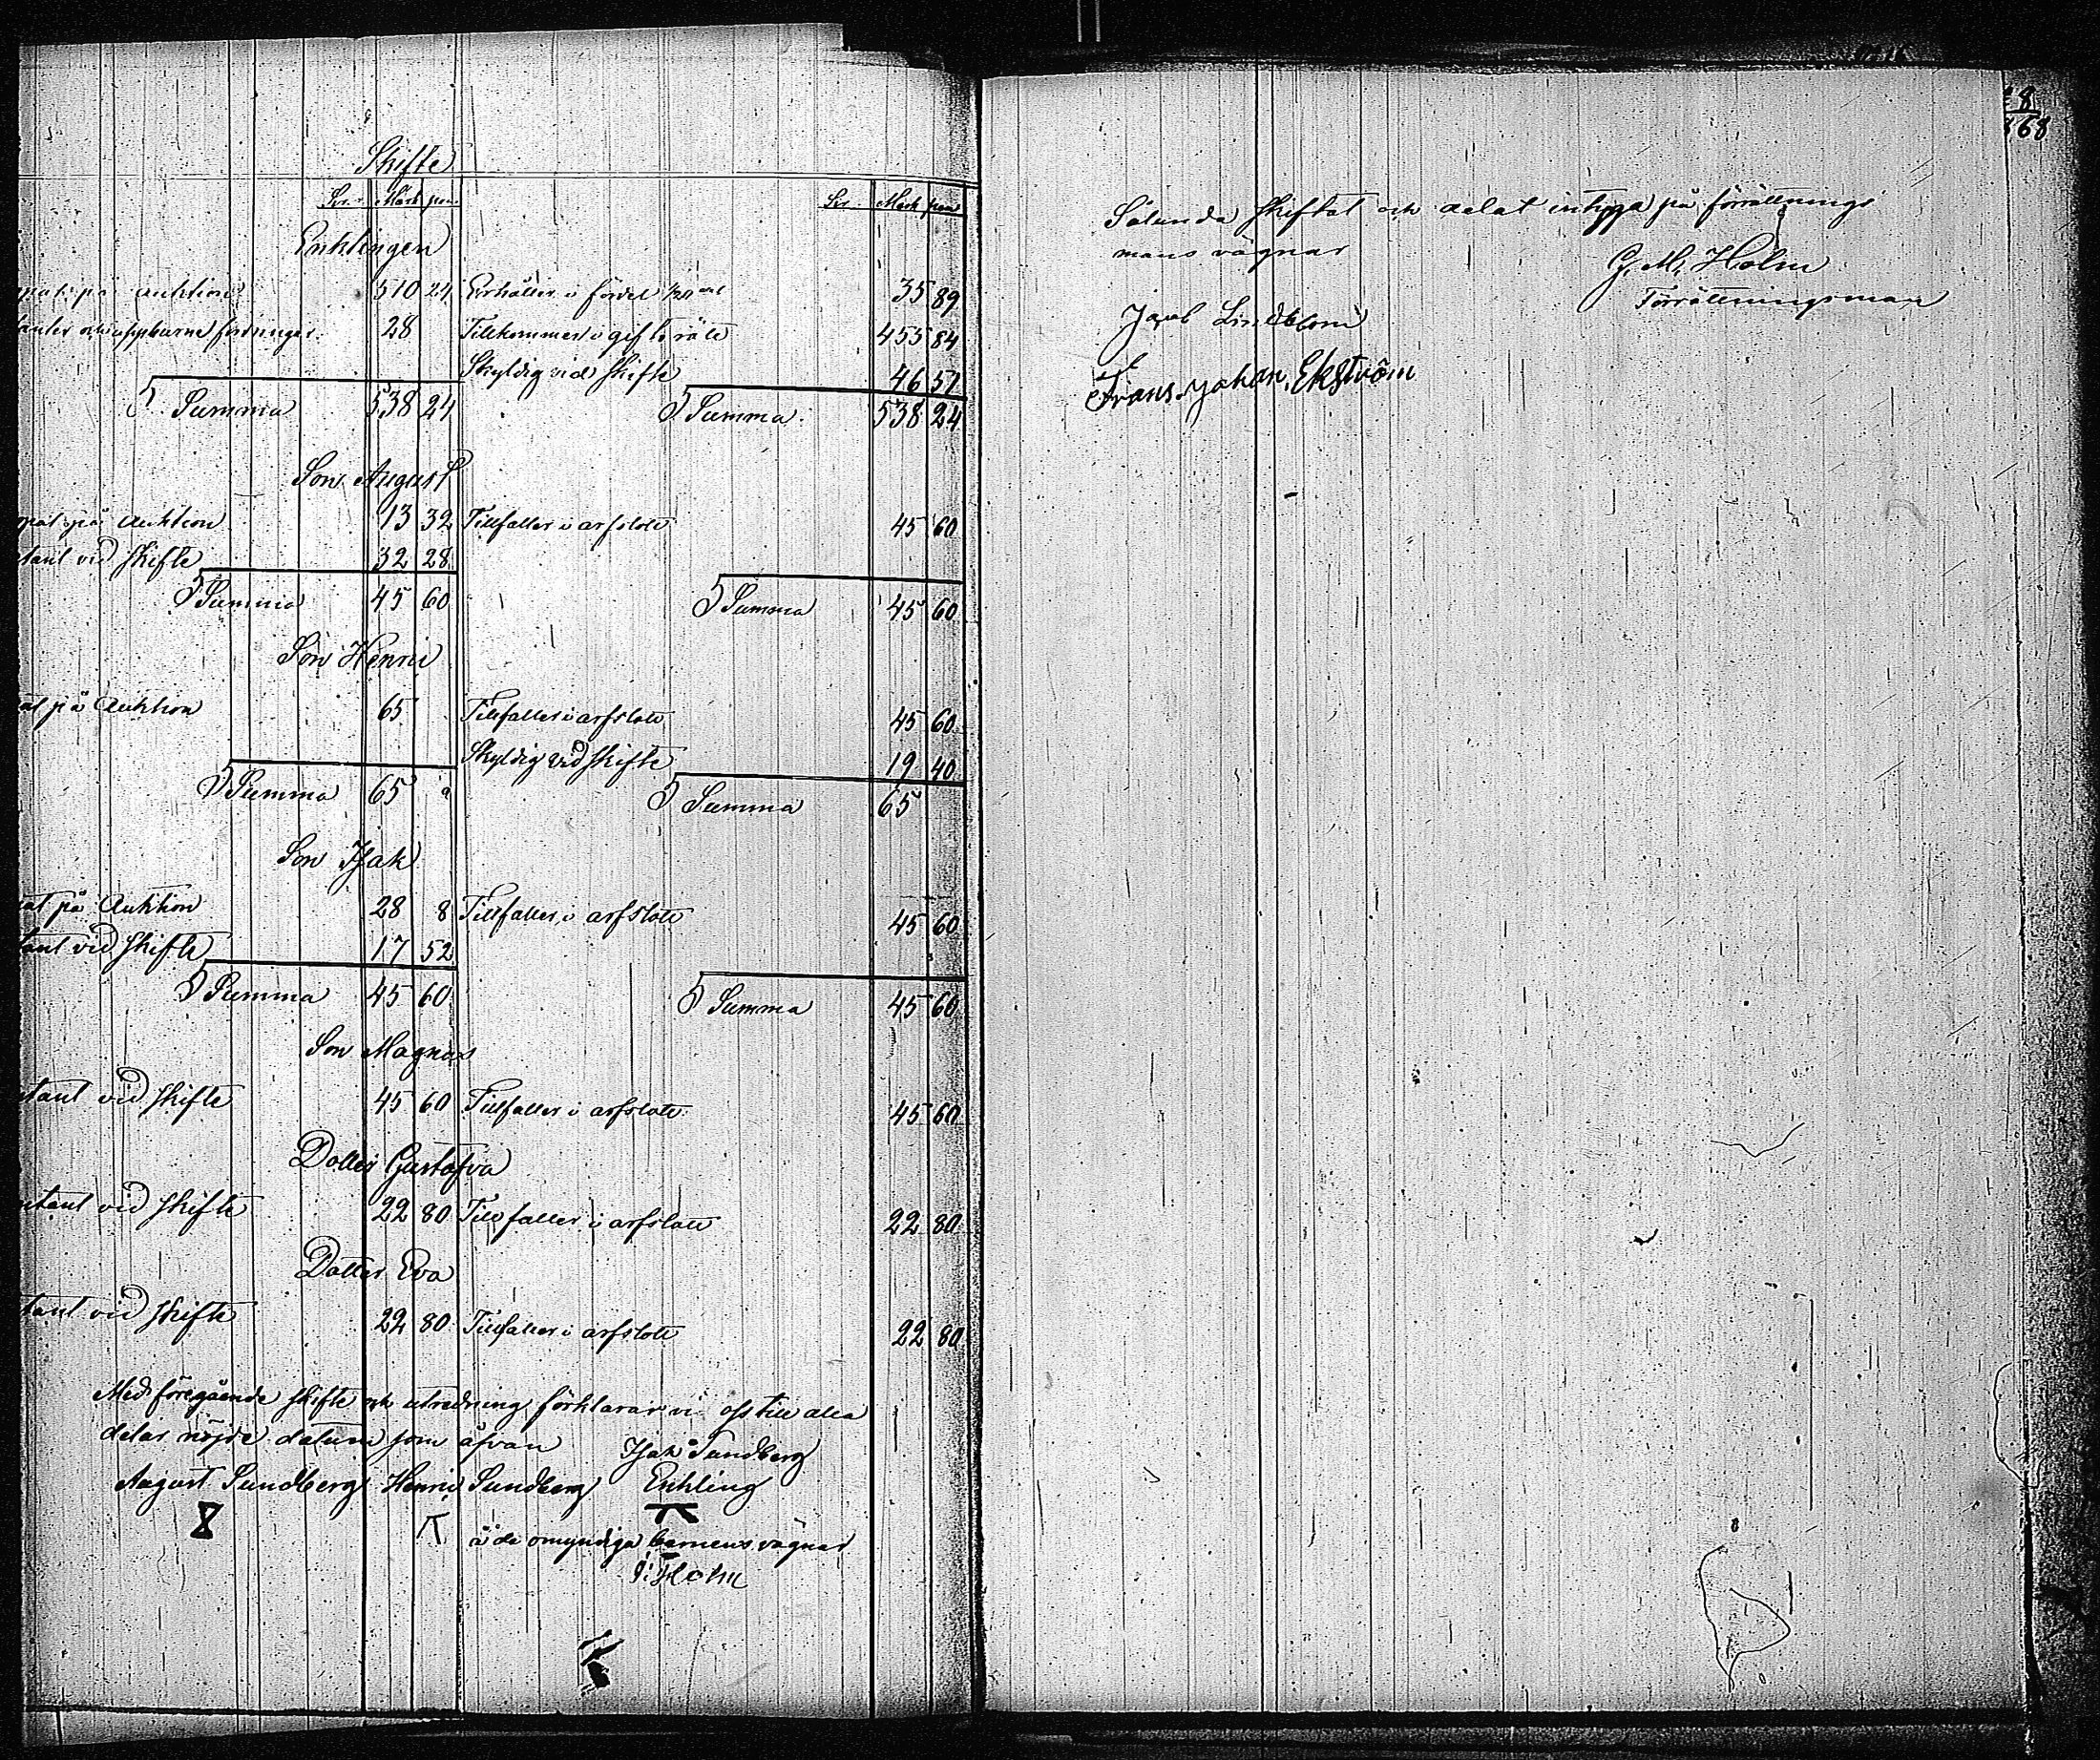 Skifte
Sr. Mark pen. Sr. Mark pen
Enklingen
på auktion 510 24 Erhåller i fördel 1/20 del 35 89
uppburne fordringar. 28 Tillkommer i giftorätt 455 84
Skyldig vid skifte 46 51
Summa 538 24 Summa 538 24
Son August
på Auktion 13 32 Tillfaller i arfslott 45 60
vid skifte 32 28
Summa 45 60 Summa 45 60
Son Henric
på Auktion 65 Tillfaller i arfslott 45 60
Skyldig vid skifte 19 40
Summa 65 Summa 65
Son Isak
på Auktion 28 8 Tillfaller i arfslott 45 60
vid skifte 17 52
Summa 45 60 Summa 45 60
Son Magnus
vid skifte 45 60 Tillfaller i arfslott 45 60
Dotter Gustafva
vid skifte 22 80 Tillfaller i arfslott 22 80
Dotter Eva
vid skifte 22 80 Tillfaller i arfslott 22 80
Med föregående skifte och utredning förklarar vi oss till alla
delar nöjde datum som åfvan Isak Sundberg
August Sundberg Henric Sundberg Enkling
å de omyndiga barnens vägnar
Holm
8
68
Sålunda skiftat och delat intyga på förrättnings
mans vägnar G. M. Holm
Förrättningsman
Jacob Lindblom
Frans Johan Ekström